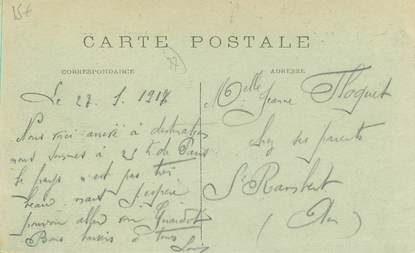 CARTE POSTALE
CORRESPONDANCE
ADRESSE
Le 27. 1. 1918
Nous voici arrivé à destination
nous sommes à 25 k de Paris
le pays n'est pas très
beau mais j'espère
pouvoir aller voir
Bons baisers à tous
Louis
Melle Jeanne Floquet
chez ses parents
St Rambert
(Ain)